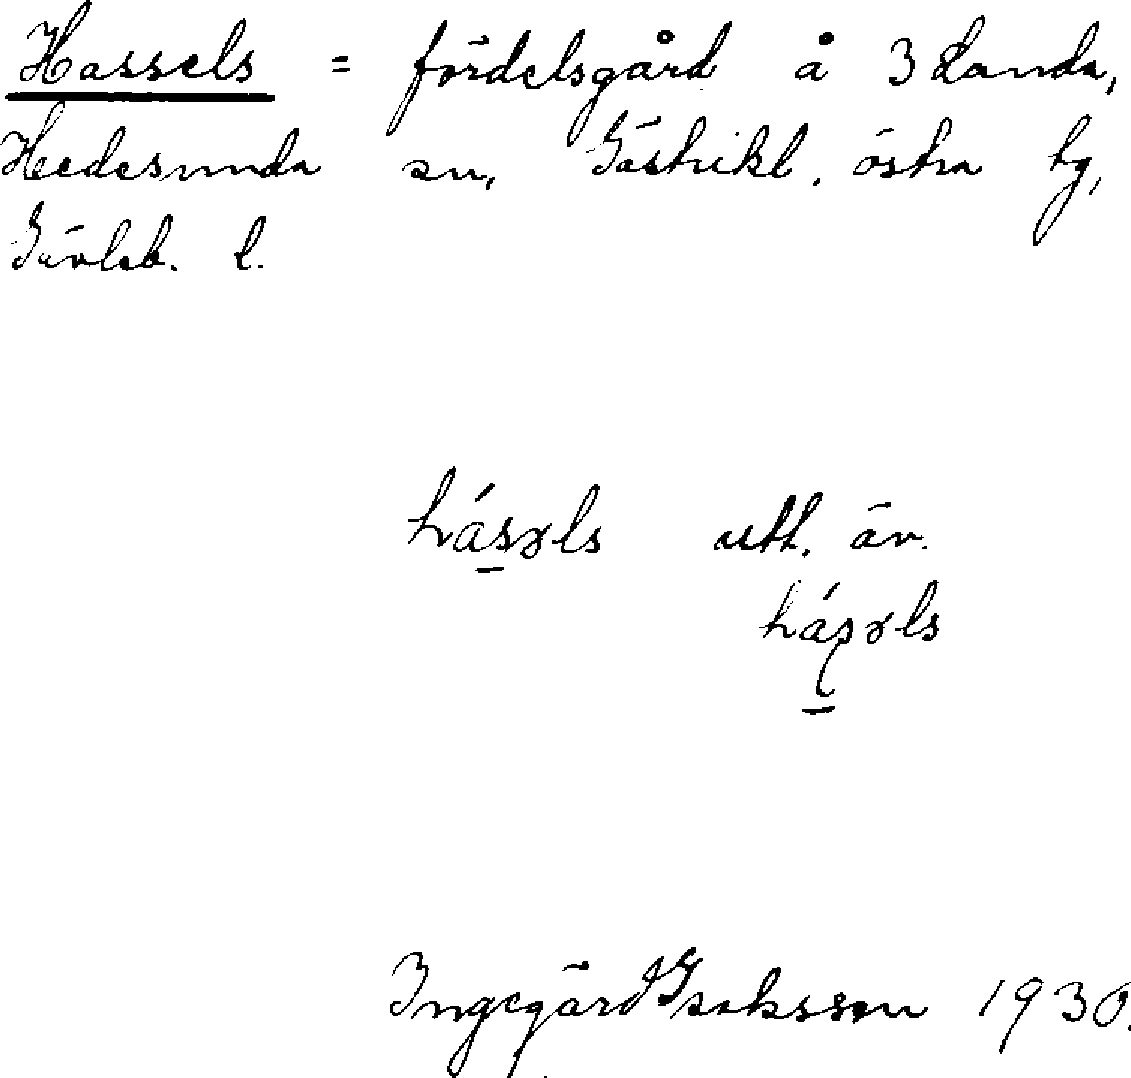 Hassels = fördelsgård å 3 Landa,
Hedesunda sn, Gästrikl. östra tg,
Gävleb. l.
hásɤls utt. äv.
háʂɤls
Ingegärd Isaksson 1930.